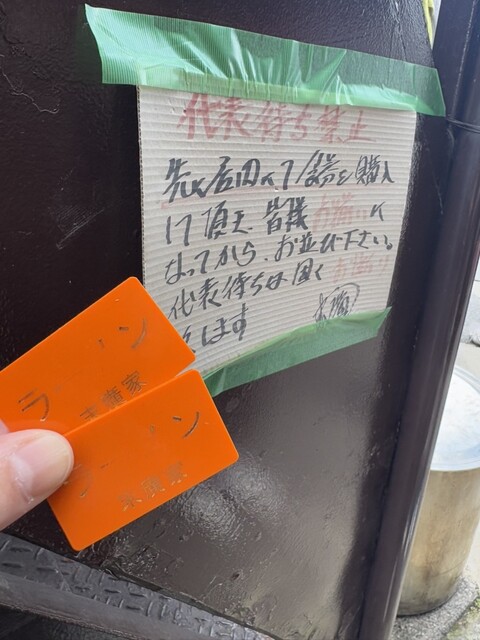 代表待ち禁止
先に店内にて食券を購入
して頂き 皆様 お揃いに
なってから、お並び下さい。
代表待ちは固く
します
ラーメン
末廣家
ラーメン
末廣家